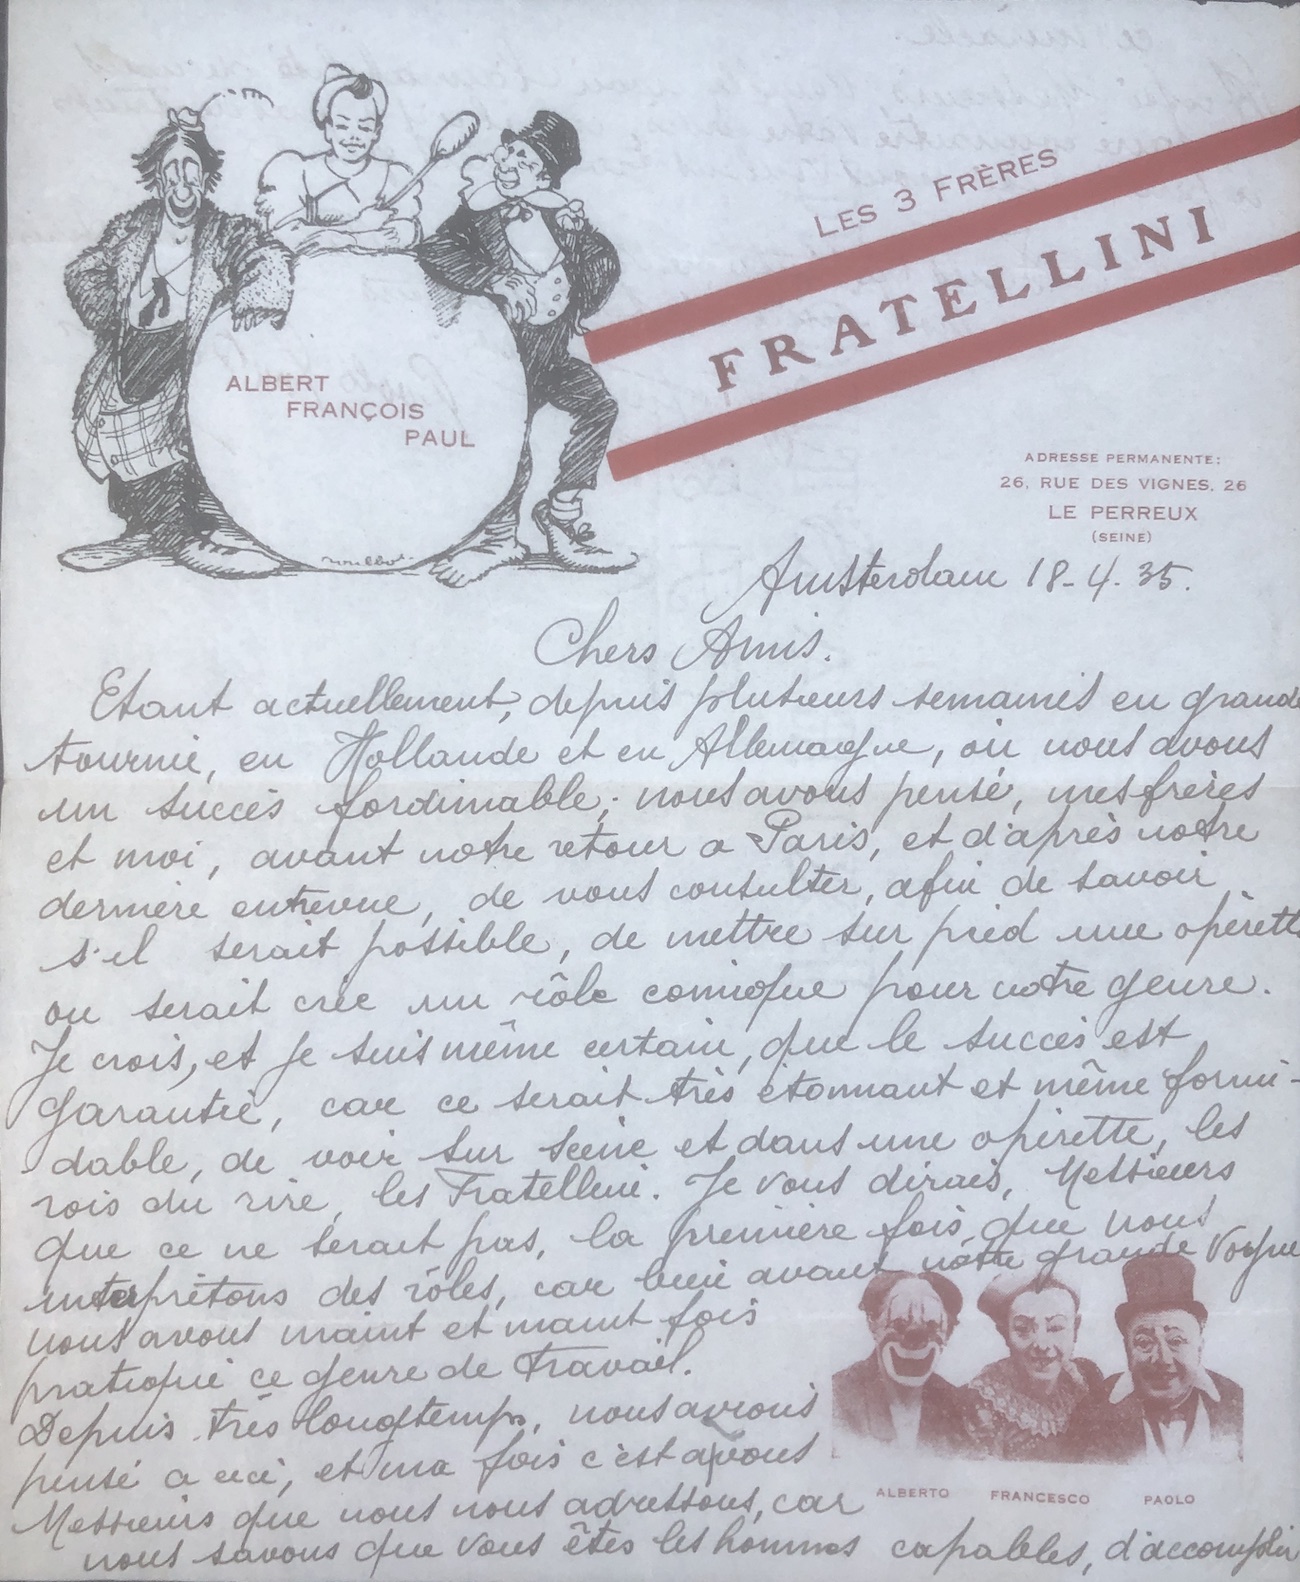 LES 3 FRÈRES
FRATELLINI
ALBERT
FRANÇOIS
PAUL
ADRESSE PERMANENTE:
26, RUE DES VIGNES, 26
LE PERREUX
(SEINE)
Amsterdam 18-4-35.
Chers Amis.
Etant actuellement, depuis plusieurs semaines en grande
tournée, en Hollande et en Allemagne, où nous avons
un succès formidable; nous avons pensé, mes frères
et moi, avant notre retour a Paris, et d'après notre
dernière entrevue, de vous consulter, afin de savoir
s'il serait possible, de mettre sur pied une opérette
ou serait crée un rôle comique pour notre genre.
Je crois, et je suis même certain, que le succès est
garantie, car ce serait très étonnant et même formi-
dable, de voir sur scène et dans une opérette, les
rois du rire, les Fratellini. Je vous dirais, Messieurs
que ce ne serait pas, la première fois, que nous
interprétons des rôles, car bien avant notre grande vogue
nous avons maint et maint fois
pratiqué ce genre de travail.
Depuis très longtemps, nous avions
pensé a ceci, et ma fois c'est a vous
Messieurs que nous nous adressons, car
nous savons que vous êtes les hommes capables, d'accomplir
ALBERTO FRANCESCO PAOLO